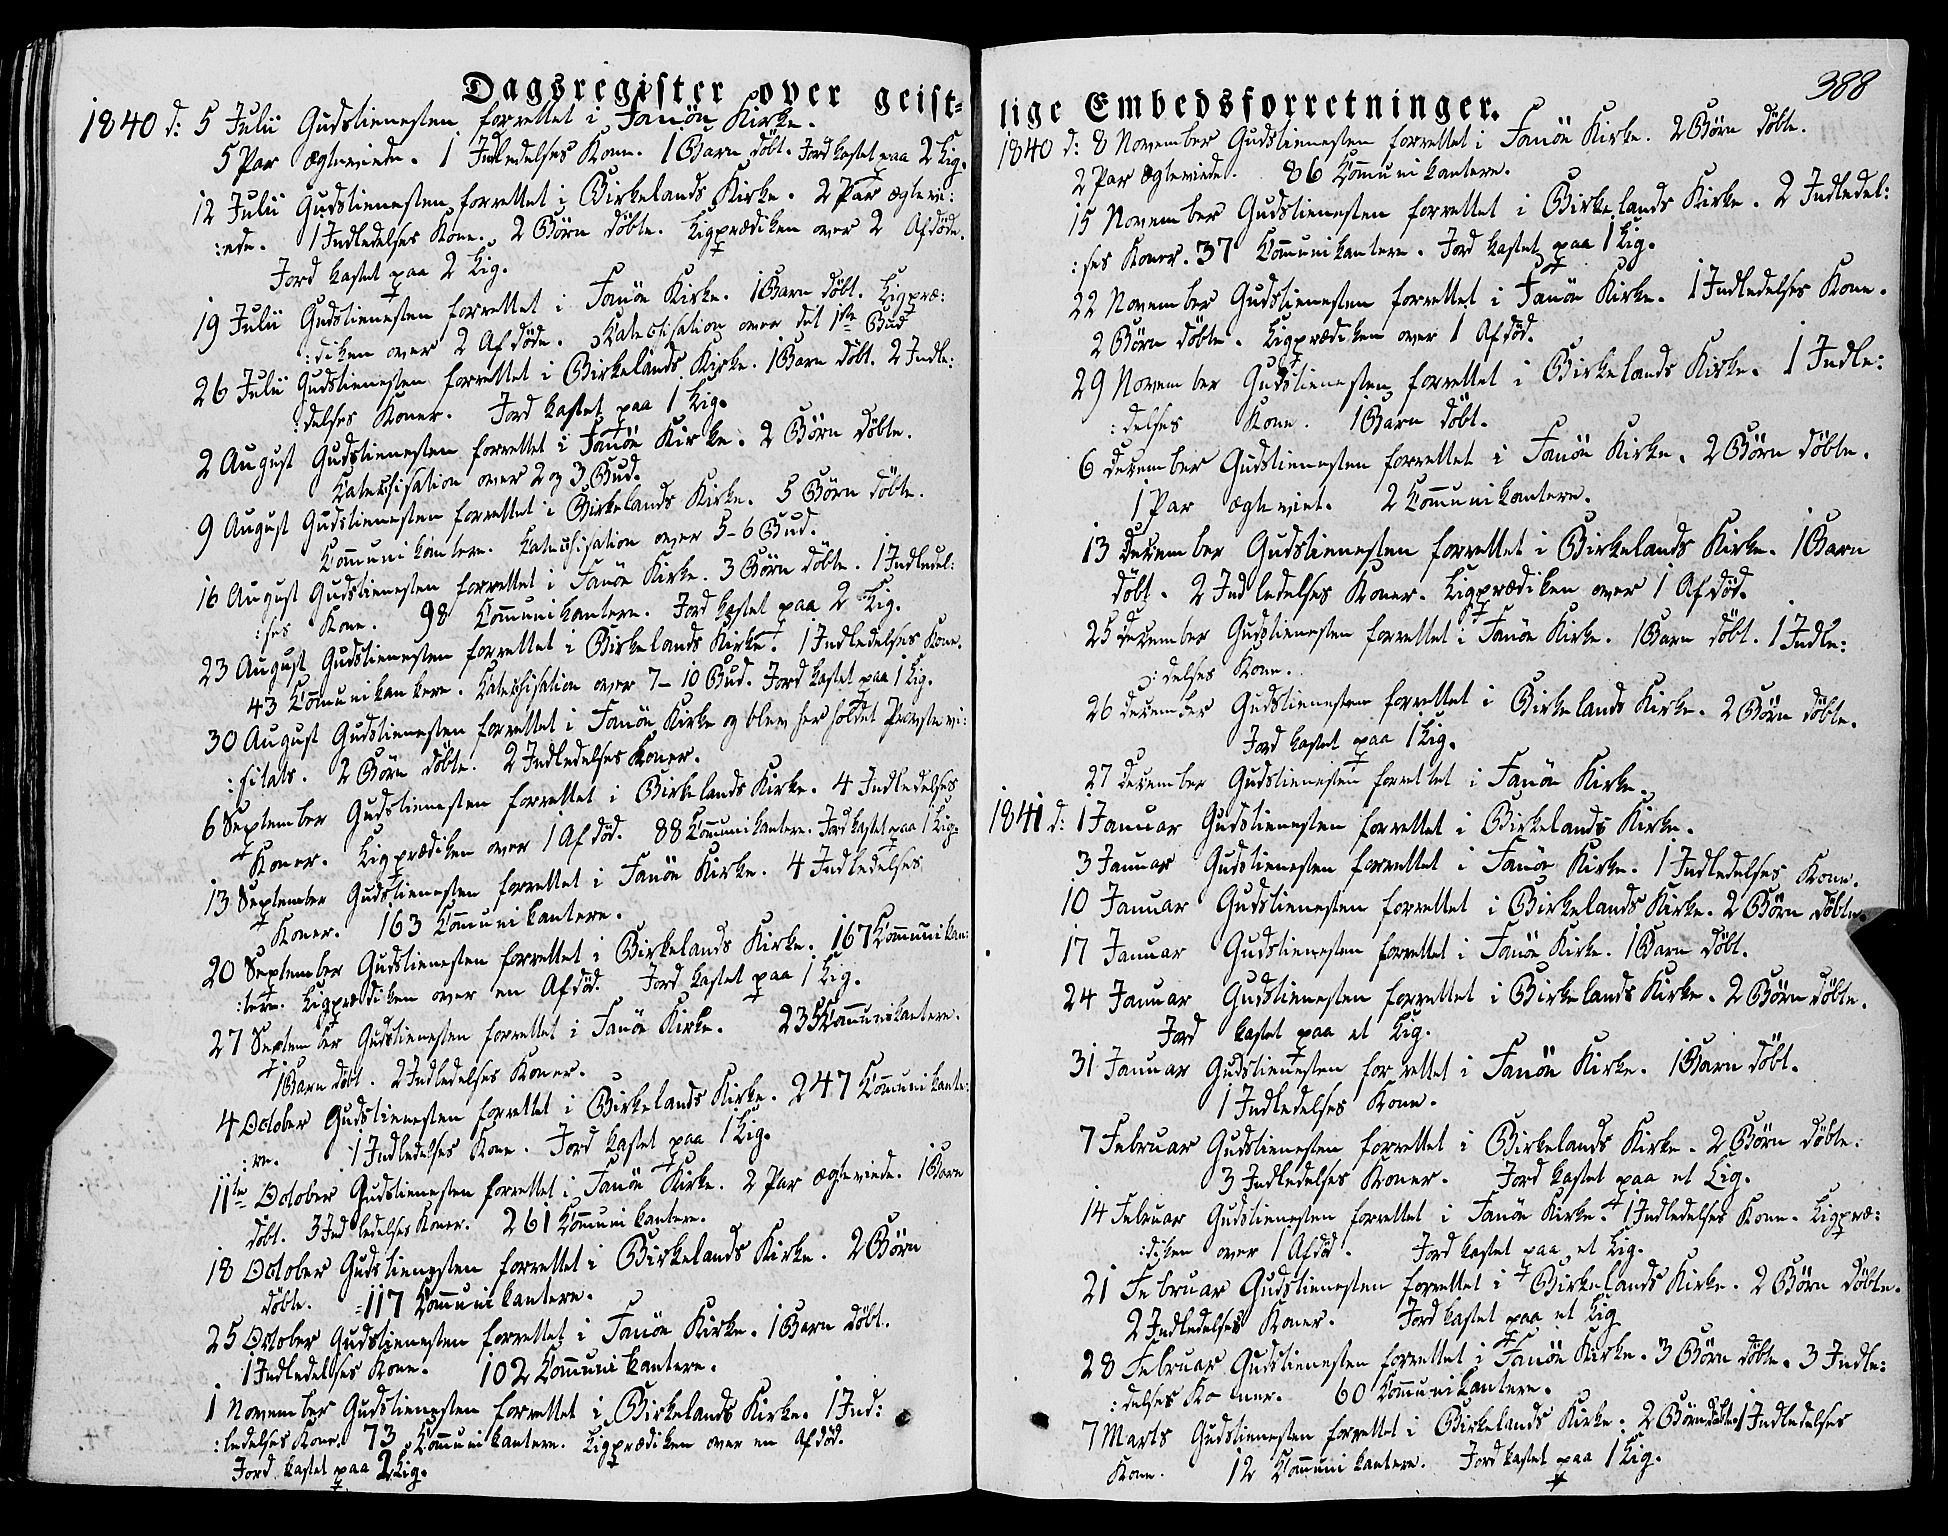 Dagsregister over geist=
1840 d: 5 Julii Gudstienesten forrettet i Fanöe Kirke.
5 Par ægteviede. 1 Indledelses Kone. 1 Barn döbt. Jord kastet paa 2 Lig.
12 Julii Gudstienesten forrettet i Birkelands Kirke. 2 Par ægtevi:
:ede. 1 Indledelses Kone. 2 Börn döbte. Ligprædiken over 2 Afdöde.
Jord kastet paa 2 Lig.
19 Julii Gudstienesten forrettet i Fanöe Kirke. 1 Barn döbt. Ligpræ:
:diken over 2 Afdöde. Katechisation over det 1ste Bud
26 Julii Gudstienesten forrettet i Birkelands Kirke. 1 Barn döbt. 2 Indle:
:delses Koner. Jord kastet paa 1 Lig.
2 August Gudstienesten forrettet i Fanöe Kirke. 2 Börn döbte.
Katechisation over 2 og 3 Bud.
9 August Gudstienesten forrettet i Birkelands Kirke. 5 Börn döbte.
Communikantere. Katechisation over 5-6 Bud.
16 August Gudstienesten forrettet i Fanöe Kirke. 3 Börn döbte. 1 Indledel:
:ses Kone. 98 Communikantere. Jord kastet paa 2 Lig.
23 August Gudstienesten forrettet i Birkelands Kirke. 1 Indledelses Kone.
43 Communikantere. Katechisation over 7-10 Bud. Jord kastet paa 1 Lig.
30 August Gudstienesten forrettet i Fanöe Kirke og blev her holdet Provstevi:
:sitats. 2 Börn döbte. 2 Indledelses Koner.
6 September Gudstienesten forrettet i Birkelands Kirke. 4 Indledelses
Koner. Ligprædiken over 1 Afdöd. 88 Communikantere. Jord kastet paa 1 Lig.
13 September Gudstienesten forrettet i Fanöe Kirke. 4 Indledelses
Koner. 163 Communikantere.
20 September Gudstienesten forrettet i Birkelands Kirke. 167 Communikan:
:tere. Ligprædiken over en Afdöd. Jord kastet paa 1 Lig.
27 September Gudstienesten forrettet i Fanöe Kirke. 235 Communikantere.
1 Barn döbt. 2 Indledelses Koner.
4 October Gudstienesten forrettet i Birkelands Kirke. 247 Communikante:
:re. 1 Indledelses Kone. Jord kastet paa 1 Lig.
11te October Gudstienesten forrettet i Fanöe Kirke. 2 Par ægteviede. 1 Barn
döbt. 3 Indledelses Koner. 261 Communikantere.
18 October Gudstienesten forrettet i Birkelands Kirke. 2 Börn
döbte. 117 Communikantere.
25 October Gudstienesten forrettet i Fanöe Kirke. 1 Barn döbt.
1 Indledelses Kone. 102 Communikantere.
1 November Gudstienesten forrettet i Birkelands Kirke. 1 Ind:
:ledelses Kone. 73 Communikantere. Ligprædiken over en Afdöd.
Jord kastet paa 2 Lig.
388
lige Embedsforretninger.
1840 d: 8 November Gudstienesten forrettet i Fanöe Kirke. 2 Börn döbte.
2 Par ægteviede. 86 Communikantere.
15 November Gudstienesten forrettet i Birkelands Kirke. 2 Indledel:
:ses Koner. 37 Communikantere. Jord kastet paa 1 Lig.
22 November Gudstienesten forrettet i Fanöe Kirke. 1 Indledelses Kone.
2 Börn döbte. Ligprædiken over 1 Afdöd.
29 November Gudstienesten forrettet i Birkelands Kirke. 1 Indle:
:delses Kone. 1 Barn döbt.
6 December Gudstienesten forrettet i Fanöe Kirke. 2 Börn döbte.
1 Par ægteviet. 2 Communikantere.
13 December Gudstienesten forrettet i Birkelands Kirke. 1 Barn
döbt. 2 Indledelses Koner. Ligprædiken over 1 Afdöd.
25 December Gudstienesten forrettet i Fanöe Kirke. 1 Barn döbt. 1 Indle:
:delses Kone.
26 December Gudstienesten forrettet i Birkelands Kirke. 2 Börn döbte.
Jord kastet paa 1 Lig.
27 December Gudstienesten forrettet i Fanöe Kirke.
1841 d: 1 Januar Gudstienesten forrettet i Birkelands Kirke.
3 Januar Gudstienesten forrettet i Fanöe Kirke. 1 Indledelses Kone.
10 Januar Gudstienesten forrettet i Birkelands Kirke. 2 Börn döbte.
17 Januar Gudstienesten forrettet i Fanöe Kirke. 1 Barn döbt.
24 Januar Gudstienesten forrettet i Birkelands Kirke. 2 Börn döbte.
Jord kastet paa et Lig.
31 Januar Gudstienesten forrettet i Fanöe Kirke. 1 Barn döbt.
1 Indledelses Kone.
7 Februar Gudstienesten forrettet i Birkelands Kirke. 2 Börn döbte.
3 Indledelses Koner. Jord kastet paa et Lig.
14 Februar Gudstienesten forrettet i Fanöe Kirke. 1 Indledelses Kone. Ligpræ:
:diken over 1 Afdöd. Jord kastet paa et Lig.
21 Februar Gudstienesten forrettet i Birkelands Kirke. 2 Börn döbte.
2 Indledelses Koner. Jord kastet paa et Lig
28 Februar Gudstienesten forrettet i Fanöe Kirke. 3 Börn döbte. 3 Indle:
:delses Koner. 60 Communikantere.
7 Marts Gudstienesten forrettet i Birkelands Kirke. 2 Börn döbte 1 Indledelses
Kone. 12 Communikantere. Jord kastet paa 1 Lig.